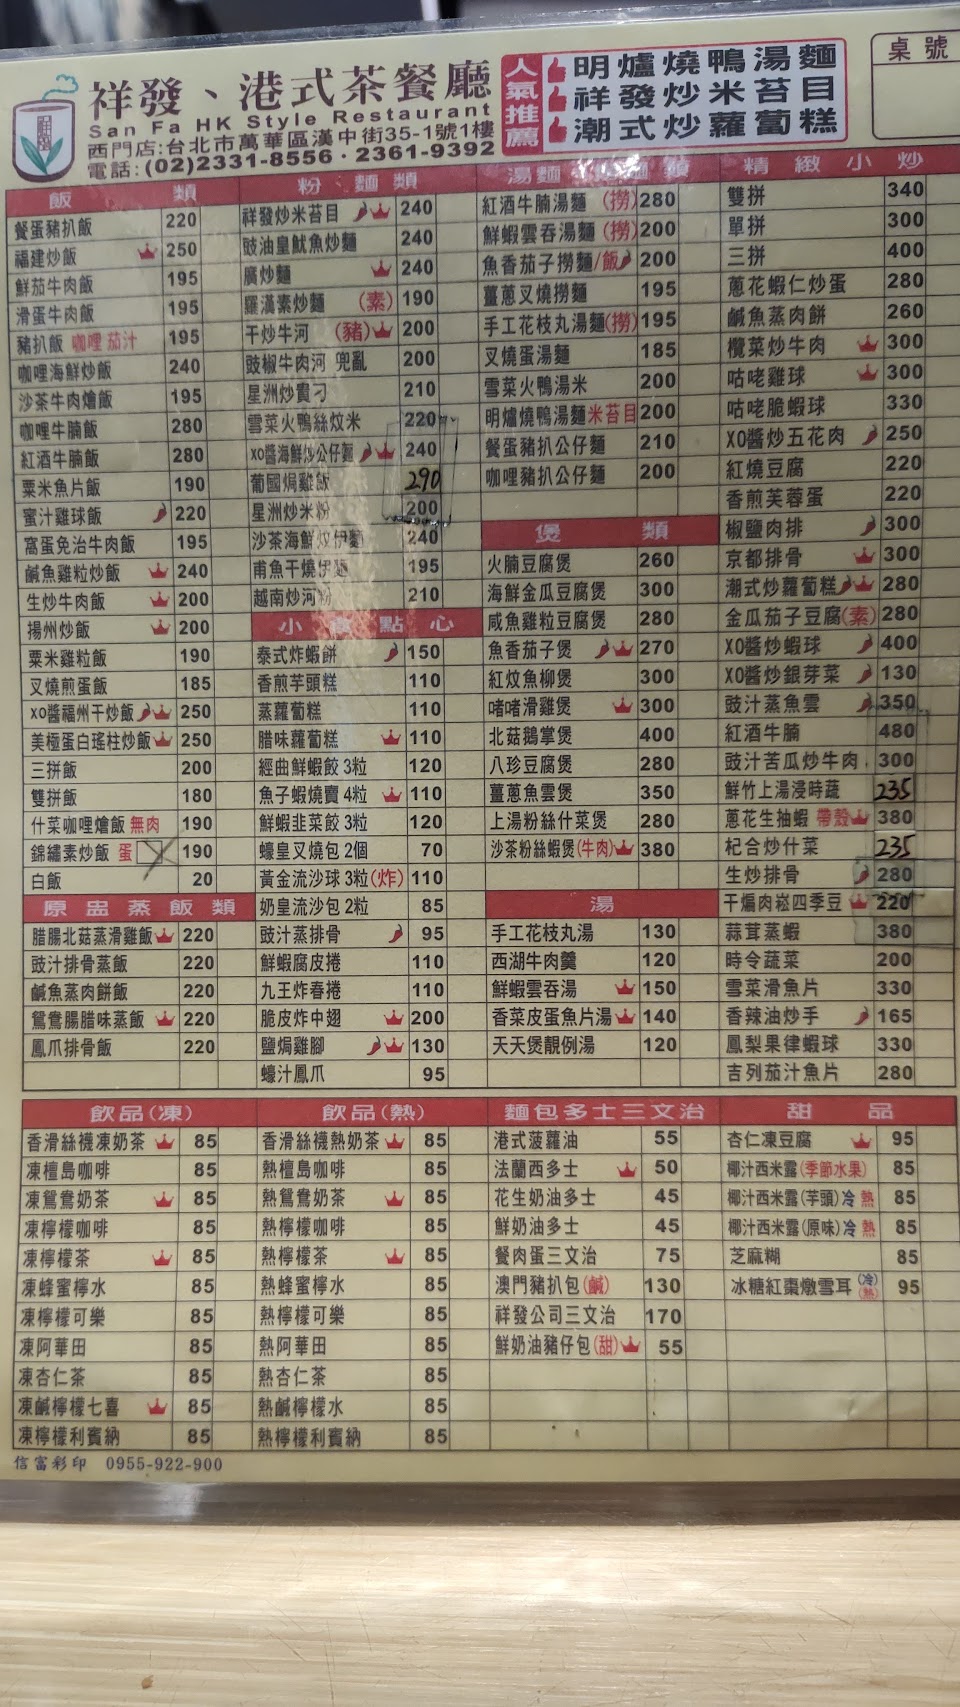 祥發、港式茶餐廳
San Fa HK Style Restaurant
西門店:台北市萬華區漢中街35-1號1樓
電話:(02)2331-8556·2361-9392
人氣推薦
明爐燒鴨湯麵
祥發炒米苔目
潮式炒蘿蔔糕
桌號
飯類
餐蛋豬扒飯 220
福建炒飯 250
鮮茄牛肉飯 195
滑蛋牛肉飯 195
豬扒飯 咖哩 茄汁 195
咖哩海鮮炒飯 240
沙茶牛肉燴飯 195
咖哩牛腩飯 280
紅酒牛腩飯 280
粟米魚片飯 190
蜜汁雞球飯 220
窩蛋免治牛肉飯 195
鹹魚雞粒炒飯 240
生炒牛肉飯 200
揚州炒飯 200
粟米雞粒飯 190
叉燒煎蛋飯 185
XO醬福州干炒飯 250
美極蛋白瑤柱炒飯 250
三拼飯 200
雙拼飯 180
什菜咖哩燴飯 無肉 190
錦繡素炒飯 蛋 190
白飯 20
原盅蒸飯類
腊腸北菇蒸滑雞飯 220
豉汁排骨蒸飯 220
鹹魚蒸肉餅飯 220
鴛鴦腸腊味蒸飯 220
鳳爪排骨飯 220
粉麵類
祥發炒米苔目 240
豉油皇魷魚炒麵 240
廣炒麵 240
羅漢素炒麵 (素) 190
干炒牛河 (豬) 200
豉椒牛肉河 兜亂 200
星洲炒貴刁 210
雪菜火鴨絲炆米 220
XO醬海鮮炒公仔麵 240
葡國焗雞飯 290
星洲炒米粉 200
沙茶海鮮炆伊麵 240
甫魚干燒伊麵 195
越南炒河粉 210
小食點心
泰式炸蝦餅 150
香煎芋頭糕 110
蒸蘿蔔糕 110
腊味蘿蔔糕 110
經曲鮮蝦餃 3粒 120
魚子蝦燒賣 4粒 110
鮮蝦韭菜餃 3粒 120
蠔皇叉燒包 2個 70
黃金流沙球 3粒(炸) 110
奶皇流沙包 2粒 85
豉汁蒸排骨 95
鮮蝦腐皮捲 110
九王炸春捲 110
脆皮炸中翅 200
鹽焗雞腳 130
蠔汁鳳爪 95
湯麵
紅酒牛腩湯麵 (撈) 280
鮮蝦雲吞湯麵 (撈) 200
魚香茄子撈麵/飯 200
薑蔥叉燒撈麵 195
手工花枝丸湯麵(撈) 195
叉燒蛋湯麵 185
雪菜火鴨湯米 200
明爐燒鴨湯麵米苔目 200
餐蛋豬扒公仔麵 210
咖哩豬扒公仔麵 200
煲類
火腩豆腐煲 260
海鮮金瓜豆腐煲 300
咸魚雞粒豆腐煲 280
魚香茄子煲 270
紅炆魚柳煲 300
啫啫滑雞煲 300
北菇鵝掌煲 400
八珍豆腐煲 280
薑蔥魚雲煲 350
上湯粉絲什菜煲 280
沙茶粉絲蝦煲(牛肉) 380
湯
手工花枝丸湯 130
西湖牛肉羹 120
鮮蝦雲吞湯 150
香菜皮蛋魚片湯 140
天天煲靚例湯 120
精緻小炒
雙拼 340
單拼 300
三拼 400
蔥花蝦仁炒蛋 280
鹹魚蒸肉餅 260
欖菜炒牛肉 300
咕咾雞球 300
咕咾脆蝦球 330
XO醬炒五花肉 250
紅燒豆腐 220
香煎芙蓉蛋 220
椒鹽肉排 300
京都排骨 300
潮式炒蘿蔔糕 280
金瓜茄子豆腐(素) 280
XO醬炒蝦球 400
XO醬炒銀芽菜 130
豉汁蒸魚雲 350
紅酒牛腩 480
豉汁苦瓜炒牛肉 300
鮮竹上湯浸時蔬 235
蔥花生抽蝦 帶殼 380
杞合炒什菜 235
生炒排骨 280
干煸肉崧四季豆 220
蒜茸蒸蝦 380
時令蔬菜 200
雪菜滑魚片 330
香辣油炒手 165
鳳梨果律蝦球 330
吉列茄汁魚片 280
飲品(凍)
香滑絲襪凍奶茶 85
凍檀島咖啡 85
凍鴛鴦奶茶 85
凍檸檬咖啡 85
凍檸檬茶 85
凍蜂蜜檸水 85
凍檸檬可樂 85
凍阿華田 85
凍杏仁茶 85
凍鹹檸檬七喜 85
凍檸檬利賓納 85
飲品(熱)
香滑絲襪熱奶茶 85
熱檀島咖啡 85
熱鴛鴦奶茶 85
熱檸檬咖啡 85
熱檸檬茶 85
熱蜂蜜檸水 85
熱檸檬可樂 85
熱阿華田 85
熱杏仁茶 85
熱鹹檸檬水 85
熱檸檬利賓納 85
麵包多士三文治
港式菠蘿油 55
法蘭西多士 50
花生奶油多士 45
鮮奶油多士 45
餐肉蛋三文治 75
澳門豬扒包(鹹) 130
祥發公司三文治 170
鮮奶油豬仔包(甜) 55
甜品
杏仁凍豆腐 95
椰汁西米露(季節水果) 85
椰汁西米露(芋頭) 冷 熱 85
椰汁西米露(原味) 冷 熱 85
芝麻糊 85
冰糖紅棗燉雪耳 (冷)(熱) 95
信富彩印 0955-922-900